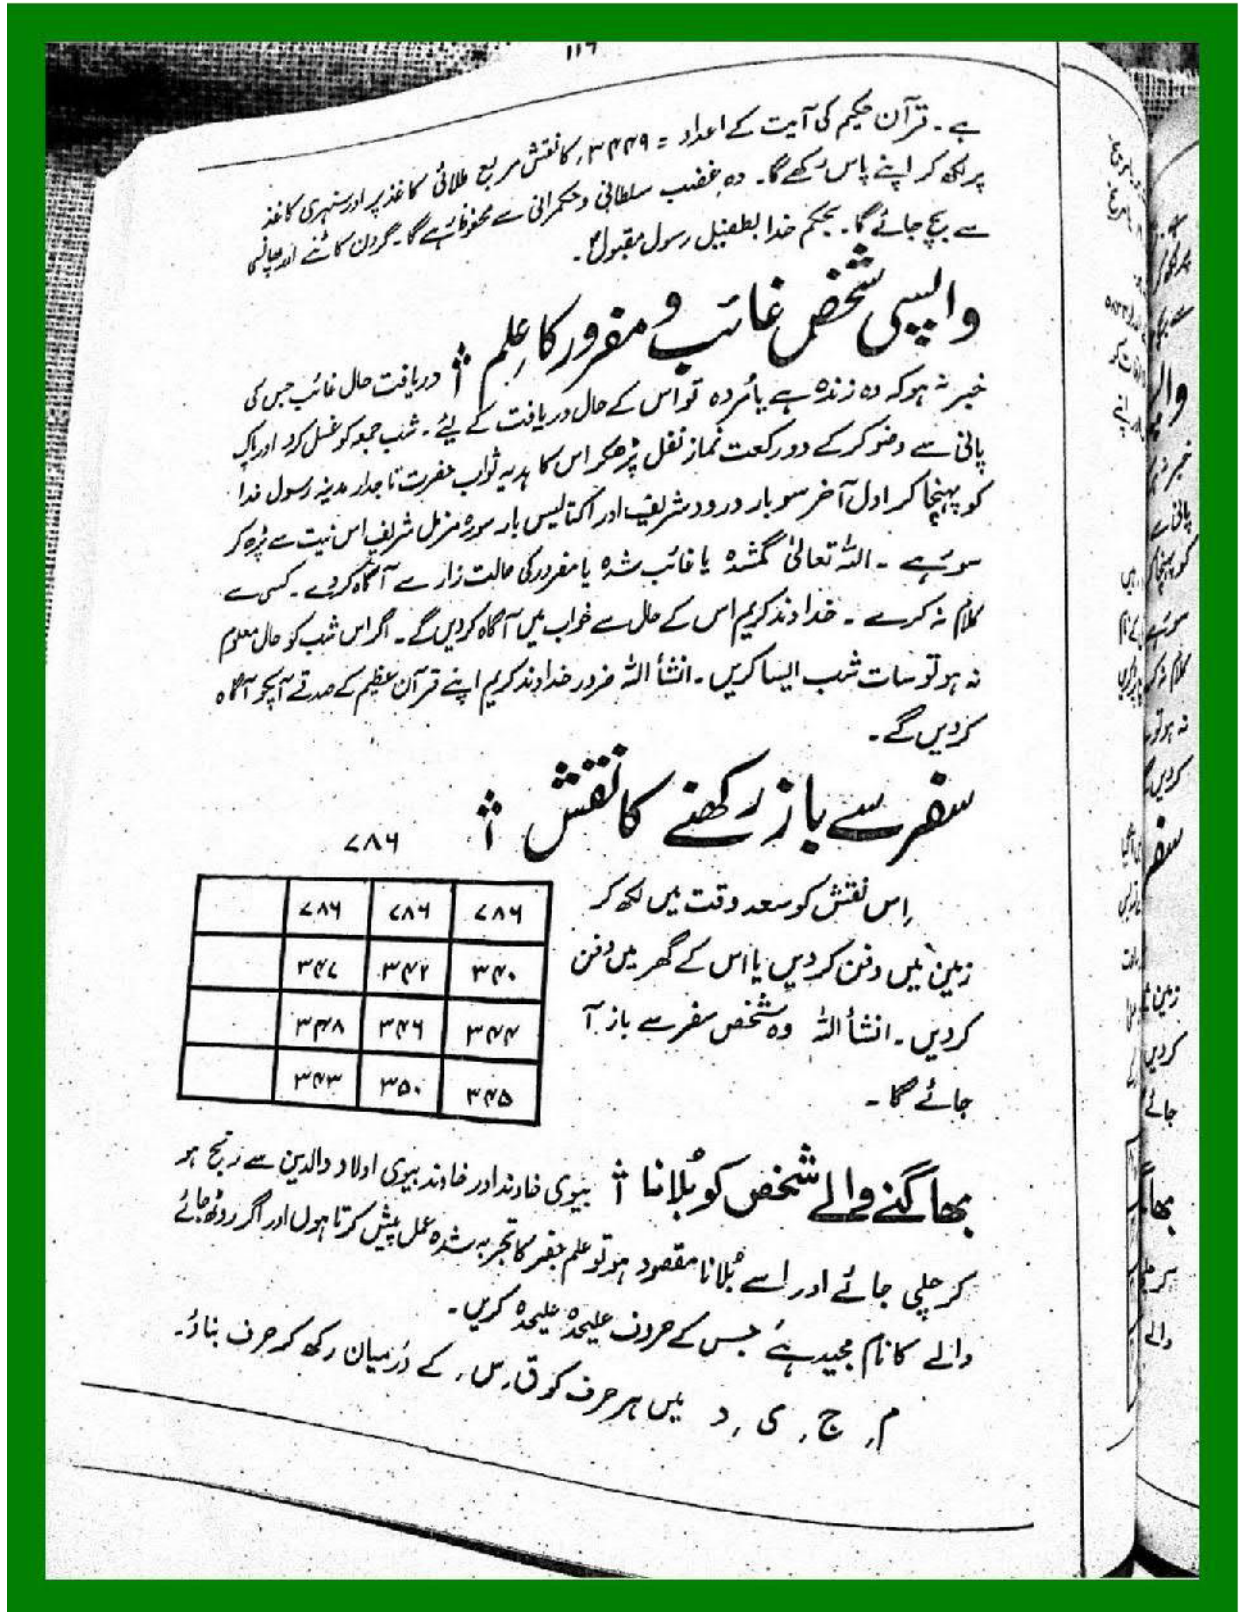 ۱۱۶
ہے۔ قرآن حکیم کی آیت کے اعداد = ۳۴۴۹، کا نقش مربع طلائی کاغذ پر اور سنہری کاغذ
پر لکھ کر اپنے پاس رکھے گا۔ وہ غضب سلطانی و حکمرانی سے محفوظ رہے گا۔ گردن کاٹنے اور پھانسی
سے بچ جائے گا۔ بحکم خدا بطفیل رسول مقبولؐ۔
واپسی شخص غائب و مفرور کا علم
دریافت حال غائب جس کی
خبر نہ ہو کہ وہ زندہ ہے یا مُردہ تو اس کے حال دریافت کے لیئے۔ شب جمعہ کو غسل کرو اور پاک
پانی سے وضو کر کے دو رکعت نماز نفل پڑھکر اس کا ہدیہ ثواب حضرت تاجدار مدینہ رسول خدا
کو پہنچا کر اول آخر سو بار درود شریف اور اکتالیس بار سورہ مزمل شریف اس نیت سے پڑھ کر
سو رہے۔ اللہ تعالیٰ گمشدہ یا غائب شدہ یا مفرور کی حالت زار سے آگاہ کر دے۔ کسی سے
کلام نہ کرے۔ خداوند کریم اس کے حال سے خواب میں آگاہ کر دیں گے۔ اگر اس شب کو حال معلوم
نہ ہو تو سات شب ایسا کریں۔ انشأ اللہ ضرور خداوند کریم اپنے قرآن عظیم کے صدقے آپکو آگاہ
کر دیں گے۔
سفر سے باز رکھنے کا نقش
۷۸۶
اِس نقش کو سعد وقت میں لکھ کر
زمین میں دفن کر دیں یا اس کے گھر میں دفن
کر دیں۔ انشأ اللہ وہ شخص سفر سے باز آ
جائے گا۔
۷۸۶ ۷۸۶ ۷۸۶
۳۴۰ ۳۴۲ ۳۴۷
۳۴۴ ۳۴۶ ۳۴۸
۳۴۵ ۳۵۰ ۳۴۳
بھاگنے والے شخص کو بُلانا
بیوی خاوند اور خاوند بیوی اولاد والدین سے رنج ہو
کر چلی جائے اور اسے بُلانا مقصود ہو تو علم جفر کا تجربہ شدہ عمل پیش کرتا ہوں اور اگر روٹھ جائے
والے کا نام مجید ہے جس کے حروف علیحدہ علیحدہ کریں۔
م، ج، ی، د میں ہر حرف کو ق، س، کے درمیان رکھ کر حرف بناؤ۔